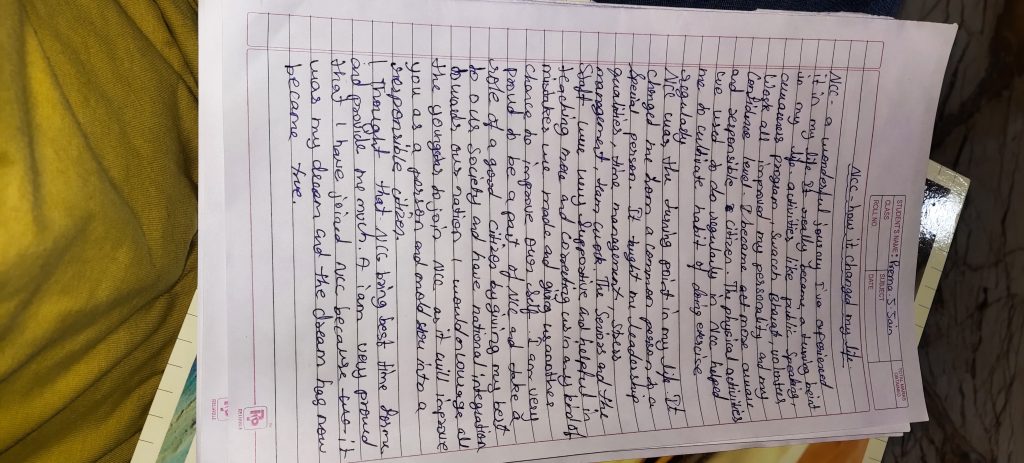 STUDENT'S NAME: Prema S Jain
CLASS SUBJECT
ROLL NO. DATE
TOTAL MARKS
NCC - how it changed my life.
NCC - a wonderful journey I've experienced
it in my life. It really became a turning point
in my life. activities like public Speaking,
awareness program Swach Bharat voluntee
Work all improved my personality and my
confidence level I became get more aware
and responsible citizen. The physical activities
we used to do regularly in NCC helped
me to cultivate habit of doing exercise
regularly
NCC was the turning point in my life It
changed me from a common person to a
special person It tught me leadership
qualities, time management Stress
management, team work. The Seniors and the
Staff were very Supportive and helpful in
teaching more and correcting us in any kind of
mistakes we made and giving us another
chance to improve our self I am very
proud to be a part of NCC and take a
role of a good citizen by giving my best
to our society and have national integration
towards our nation I would
the youngers to join NCC as it will improve
you as a person and mould into a
responsible citizen.
I Thought that NCC being best time
and provide me much. A iam very proud
that I have joined NCC because it
was my dream and the dream has now
become true